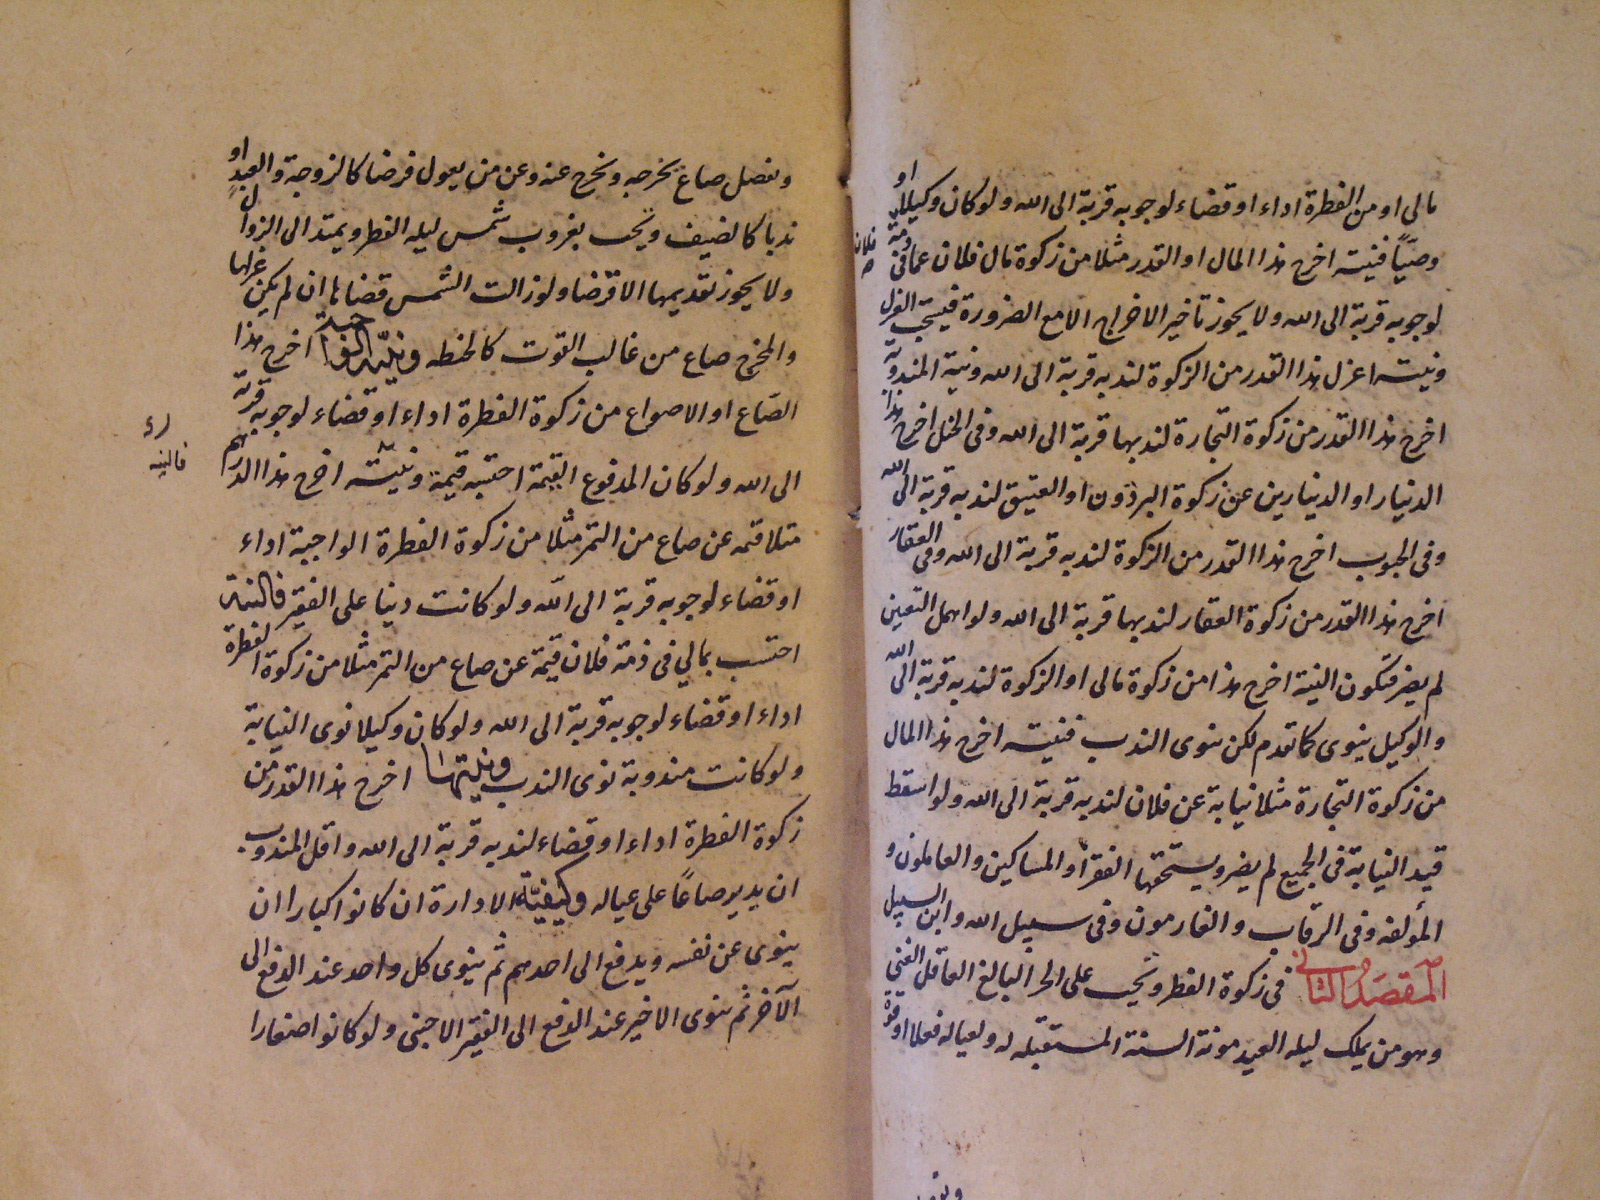 مالى او من الفطرة اداء او قضاء لوجوبه قربة الى الله ولو كان وكيلا او
وصيّاً فنيته اخرج هذا المال او القدر مثلا من زكوة مال فلان عما فى ذمته فلان
لوجوبه قربة الى الله ولا يجوز تأخير الاخراج الا مع الضرورة فيستحب العزل
ونيته اعزل هذا القدر من الزكوة لندبه قربة الى الله ونية المندوبة
اخرج هذا القدر من زكوة التجارة لندبها قربة الى الله وفى الخيل اخرج هذا
الدينار او الدينارين عن زكوة البرذون او العتيق لندبه قربة الى الله
وفى الحبوب اخرج هذا القدر من الزكوة لندبه قربة الى الله وفى العقار
اخرج هذا القدر من زكوة العقار لندبها قربة الى الله ولو اهمل التعيين
لم يضر فتكون النية اخرج هذا من زكوة مالى او الزكوة لندبه قربة الى الله
والوكيل ينوى كما تقدم لكن ينوى الندب فنيته اخرج هذا المال
من زكوة التجارة مثلا نيابة عن فلان لندبه قربة الى الله ولو اسقط
قيد النيابة فى الجميع لم يضر ويستحقها الفقرأ والمساكين والعاملون و
المؤلفة وفى الرقاب والغارمون وفى سبيل الله وابن السبيل
المقصد الثانى فى زكوة الفطر ويجب على الحر البالغ العاقل الغنى
وهو من يملك ليلة العيد مونة السنة المستقبله له ولعياله فعلا او قوة
ويفضل صاع يخرجه ويخرج عنه وعن من يعول فرضا كالزوجة والعبد او
ندبا كالضيف ويجب بغروب شمس ليله الفطر ويمتد الى الزوال
ولا يجوز تقديمها الا قرضا ولو زالت الشمس قضاها ان لم يكن عزلها
والمخرج صاع من غالب القوت كالحنطه ونيّته اخرج هذا
الصّاع او الاصواع من زكوة الفطرة اداء او قضاء لوجوبه قربة
الى الله ولو كان المدفوع القيمة احتسبه قيمة ونيّته اخرج هذا الدرهم
مثلا قيمه عن صاع من التمر مثلا من زكوة الفطرة الواجبة اداء
فالنيه
او قضاء لوجوبه قربة الى الله ولو كانت دينا على الفقير فالنية
احتسب بمالي فى ذمة فلان قيمة عن صاع من التمر مثلا من زكوة الفطرة
اداء او قضاء لوجوبه قربة الى الله ولو كان وكيلا نوى النيابة
ولو كانت مندوبة نوى الندب ونيتها اخرج هذا القدر من
زكوة الفطرة اداء او قضاء لندبه قربة الى الله واقل المندوب
ان يدير صاعاً على عياله وكيفيّة الادارة ان كانوا كبارا ان
ينوى عن نفسه ويدفع الى احدهم ثم ينوى كل واحد عند الدفع الى
الآخر ثم ينوى الاخير عند الدفع الى الفقير الاجنبى ولو كانوا صغارا